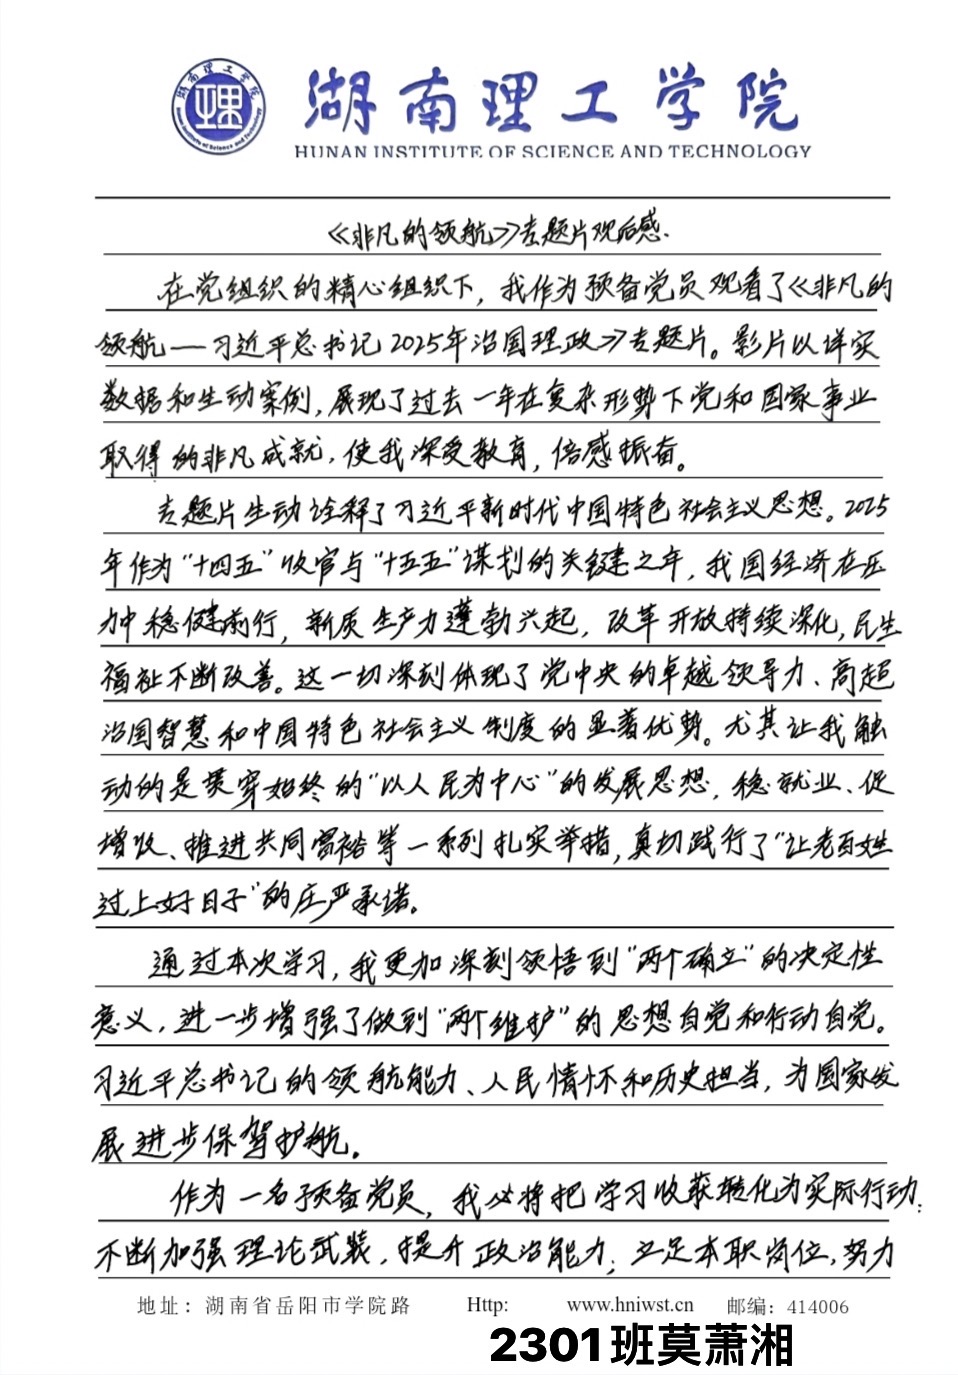 湖南理工学院
HUNAN INSTITUTE OF SCIENCE AND TECHNOLOGY
《非凡的领航》专题片观后感.
在党组织的精心组织下，我作为预备党员观看了《非凡的
领航——习近平总书记2025年治国理政》专题片。影片以详实
数据和生动案例，展现了过去一年在复杂形势下党和国家事业
取得的非凡成就，使我深受教育，倍感振奋。
专题片生动诠释了习近平新时代中国特色社会主义思想。2025
年作为“十四五”收官与“十五五”谋划的关键之年，我国经济在压
力中稳健前行，新质生产力蓬勃兴起，改革开放持续深化，民生
福祉不断改善。这一切深刻体现了党中央的卓越领导力、高超
治国智慧和中国特色社会主义制度的显著优势。尤其让我触
动的是贯穿始终的“以人民为中心”的发展思想，稳就业、促
增收、推进共同富裕等一系列扎实举措，真切践行了“让老百姓
过上好日子”的庄严承诺。
通过本次学习，我更加深刻领悟到“两个确立”的决定性
意义，进一步增强了做到“两个维护”的思想自觉和行动自觉。
习近平总书记的领航能力、人民情怀和历史担当，为国家发
展进步保驾护航。
作为一名预备党员，我必将把学习收获转化为实际行动；
不断加强理论武装，提升政治能力；立足本职岗位，努力
地址：湖南省岳阳市学院路 Http: www.hniwst.cn 邮编：414006
2301班莫萧湘